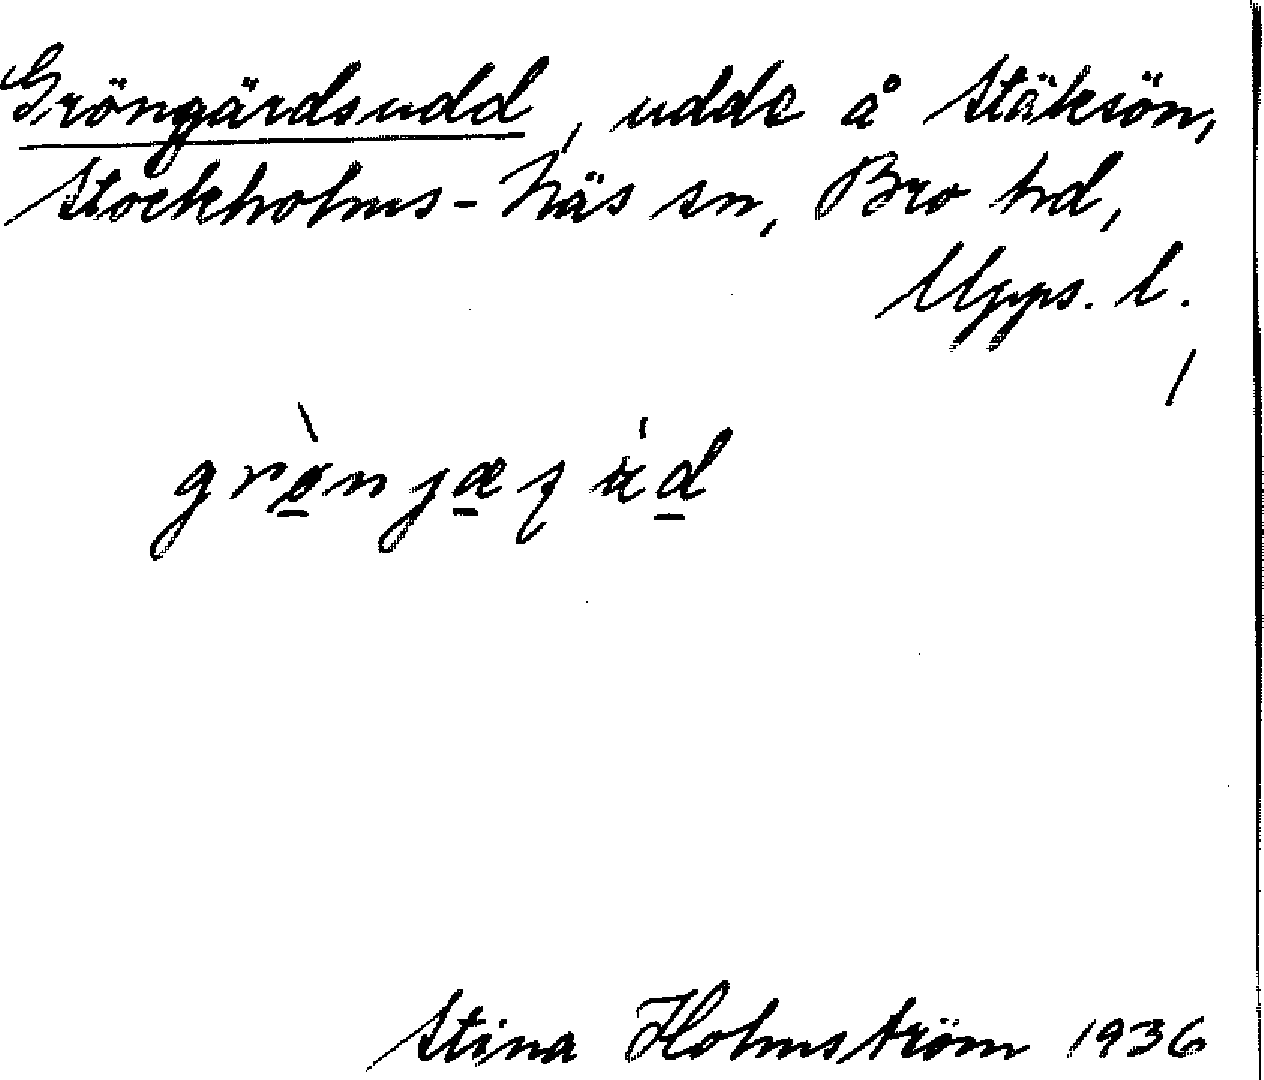 Gröngärdsudd, udde å Stäksön,
Stockholms-Näs sn, Bro hd,
Upps. l.
Stina Holmström 1936